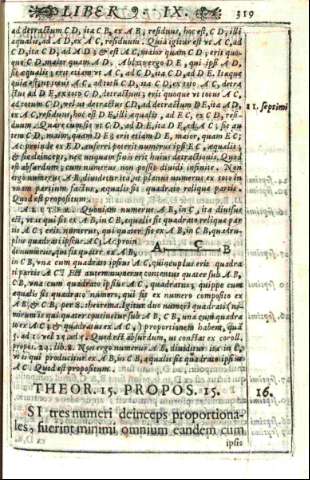 LIBER 9. IX. 319
ad detractum CD, ita CB, ex AB, residuus, hoc est, CD, illi
æqualis, ad AD, ex AC, residuum. Quia igitur est vt AC, ad
CD, ita CD, ad AD; & est AC, maior quam CD; erit quo-
que CD, maior quam AD. Ablato vero DE, qui ipsi AD,
sit æqualis; erit etiam vt AC, ad CD, ita CD, ad DE. Itaque
quia est totus AC, ad totum CD, ita CD, ex AC, detra-
ctus ad DE, ex CD, detractum; erit quoque vt totus AC,
11. septimi
ad totum CD, vel vt detractus CD, ad detractum DE, ita AD,
ex AC, residuus, hoc est, illi æqualis, ad EC, ex CD, resi-
duum. Quare cum sit vt CD, ad DE, ita DE, ad EC; sit au-
tem CD, maior, quam DE; erit etiam DE, maior, quam EC;
Ac proinde ex ED, auferri poterit numerus ipsi EC, æqualis;
& sic deinceps, nec vnquam finis erit huius detractionis. Quod
est absurdum; cum numerus non possit diuidi infinite. Non
ergo numerus AB, diuidetur ita, vt planus numerus, ex toto in
vnam partium factus, æqualis sit quadrato reliquæ partis.
Quod est propositum.
ALITER. Quoniam numerus AB, in C, ita diuisus
est, vt is qui fit ex AB, in CB, æqualis sit quadrato reliquæ par-
tis AC; erit numerus, qui quater fit ex AB, in CB, quadru-
plus quadrati ipsius AC; Ac proin-
de numerus, qui fit quater ex AB,
A C B
in CB, vna cum quadrato ipsius AC, quincuplus erit quadra-
ti partis AC. Est autem numerus contentus quater sub AB,
CB, vna cum quadrato ipsius AC, quadratus; quippe cum
æqualis sit quadrato numeri, qui fit ex numero composito ex
AB, & CB, per 8. theorema. Igitur duo numeri quadrati (nu-
merus is qui quater continetur sub AB, CB, vna cum quadra-
to ex AC; & quadratus ex AC,) proportionem habent, quã
5. ad 1. vel 25. ad 5. Quod est absurdum, vt constat ex coroll.
propos. 24. lib. 8. Non ergo numerus AB, diuiditur ita in C,
vt is qui producitur ex AB, in CB, æqualis sit quadrato ipsius
AC. Quod est propositum.
THEOR. 15. PROPOS. 15. 16.
SI tres numeri deinceps proportiona-
les, fuerint minimi omnium eandem cum
ipsis